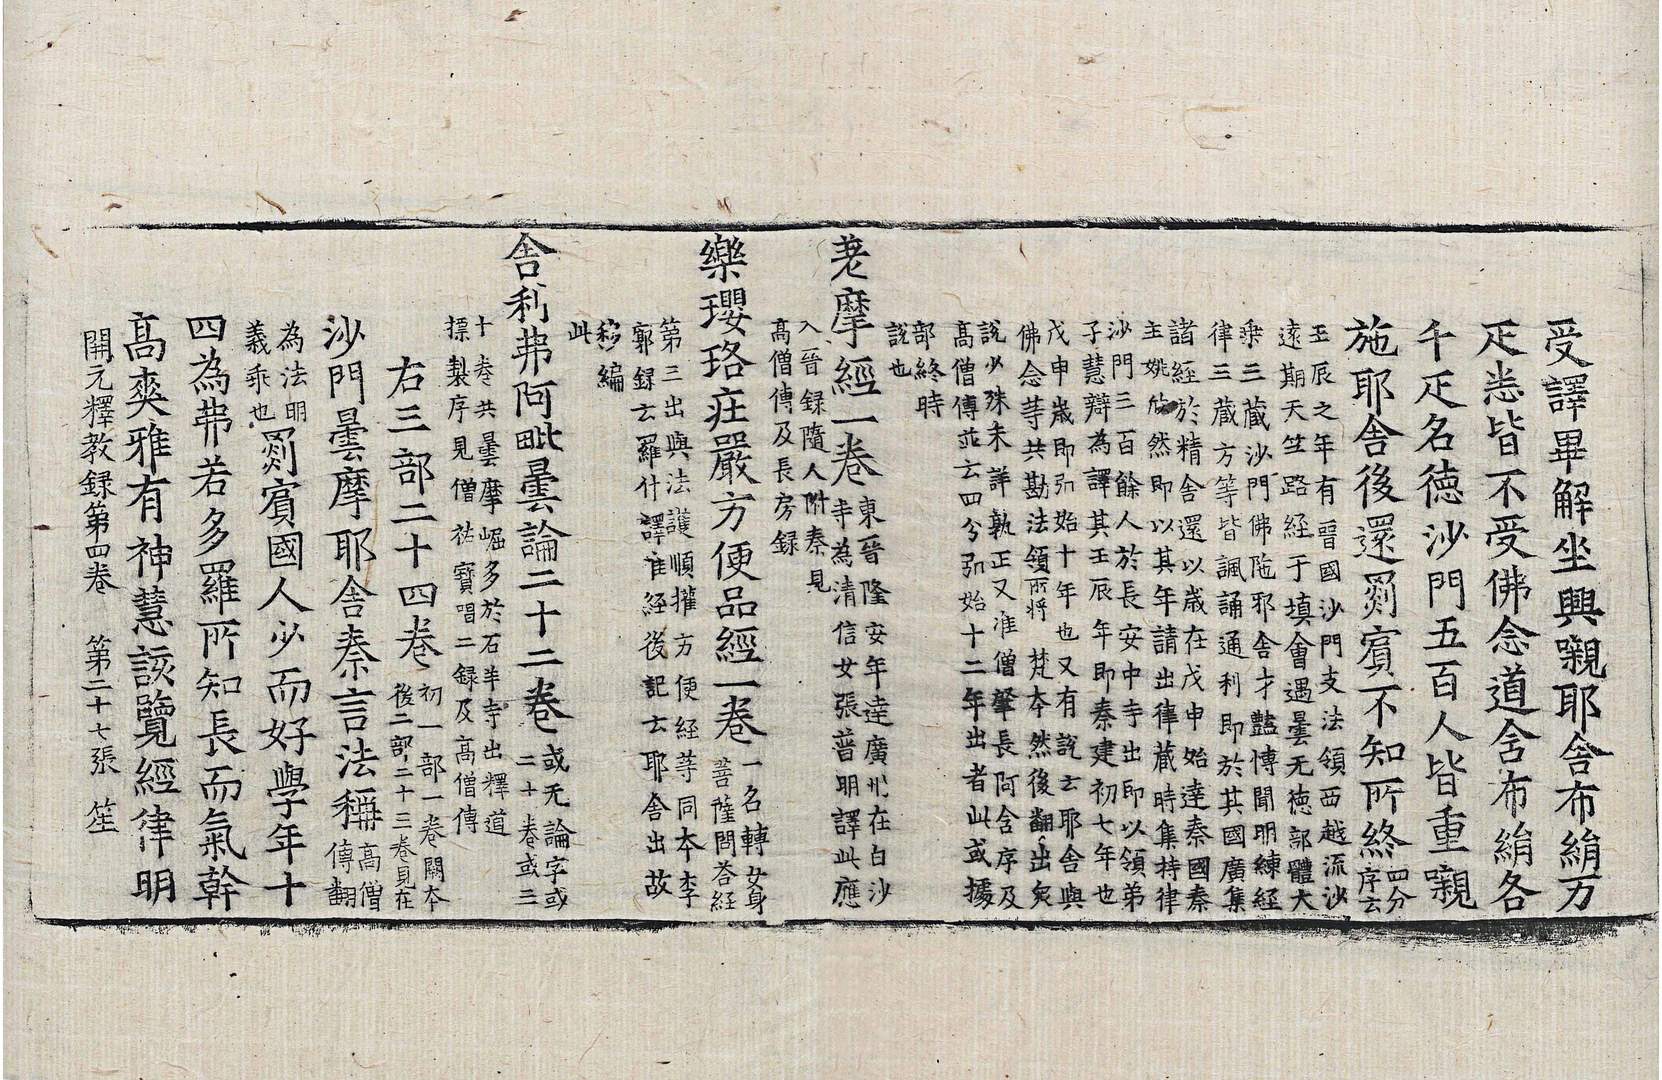 受譯畢解坐興嚫耶舍布絹万
疋恙皆不受佛念道含布絹各
千疋名徳沙門五百人皆重嚫
施耶舍後還罽賔不知所終四分
序云
壬辰之年有晋國沙門支法領西越流沙
遠期天竺路経于塡會遇曇无徳部體大
乗三藏沙門佛陁邪舎才豔愽聞明練経
律三藏方等皆諷誦通利即於其國廣集
諸経於精舍還以歳在戊申始達秦國秦
主姚欣然即以其年請出律藏時集持律
沙門三百餘人於長安中寺出即以領弟
子慧辯為譯其壬辰年即秦建初七年也
戊申歳即弘始十年也又有說云耶舎與
佛念䓁共勘法領所将梵本然後翻出矣
說少殊未詳孰正又准僧肇長阿含序及
高僧傳並云四分弘始十二年出者此或據
部終時
說也
老摩經一卷東晉隆安年達廣州在白沙
寺為清信女張普明譯此應
入晉録隨人附秦見
高僧傳及長房録
樂瓔珞莊嚴方便品經一卷一名轉女身
菩薩問荅経
第三出與法護順權方便経䓁同本李
郭録云羅什譯准經後記云耶舎出故
移編
此
舎利弗阿毗曇論二十二卷或无論字或
二十卷或三
十卷共曇摩崛多於石羊寺出釋道
摽製序見僧祐寶唱二録及高僧傳
右三部二十四卷初一部一卷闕本
後二部二十三卷見在
沙門曇摩耶舎秦言法稱高僧
傳翻
為法明
義乖也罽賔國人少而好學年十
四為弗若多羅所知長而氣幹
高爽雅有神慧該覽經律明
開元釋教録第四卷　第二十七張　笙